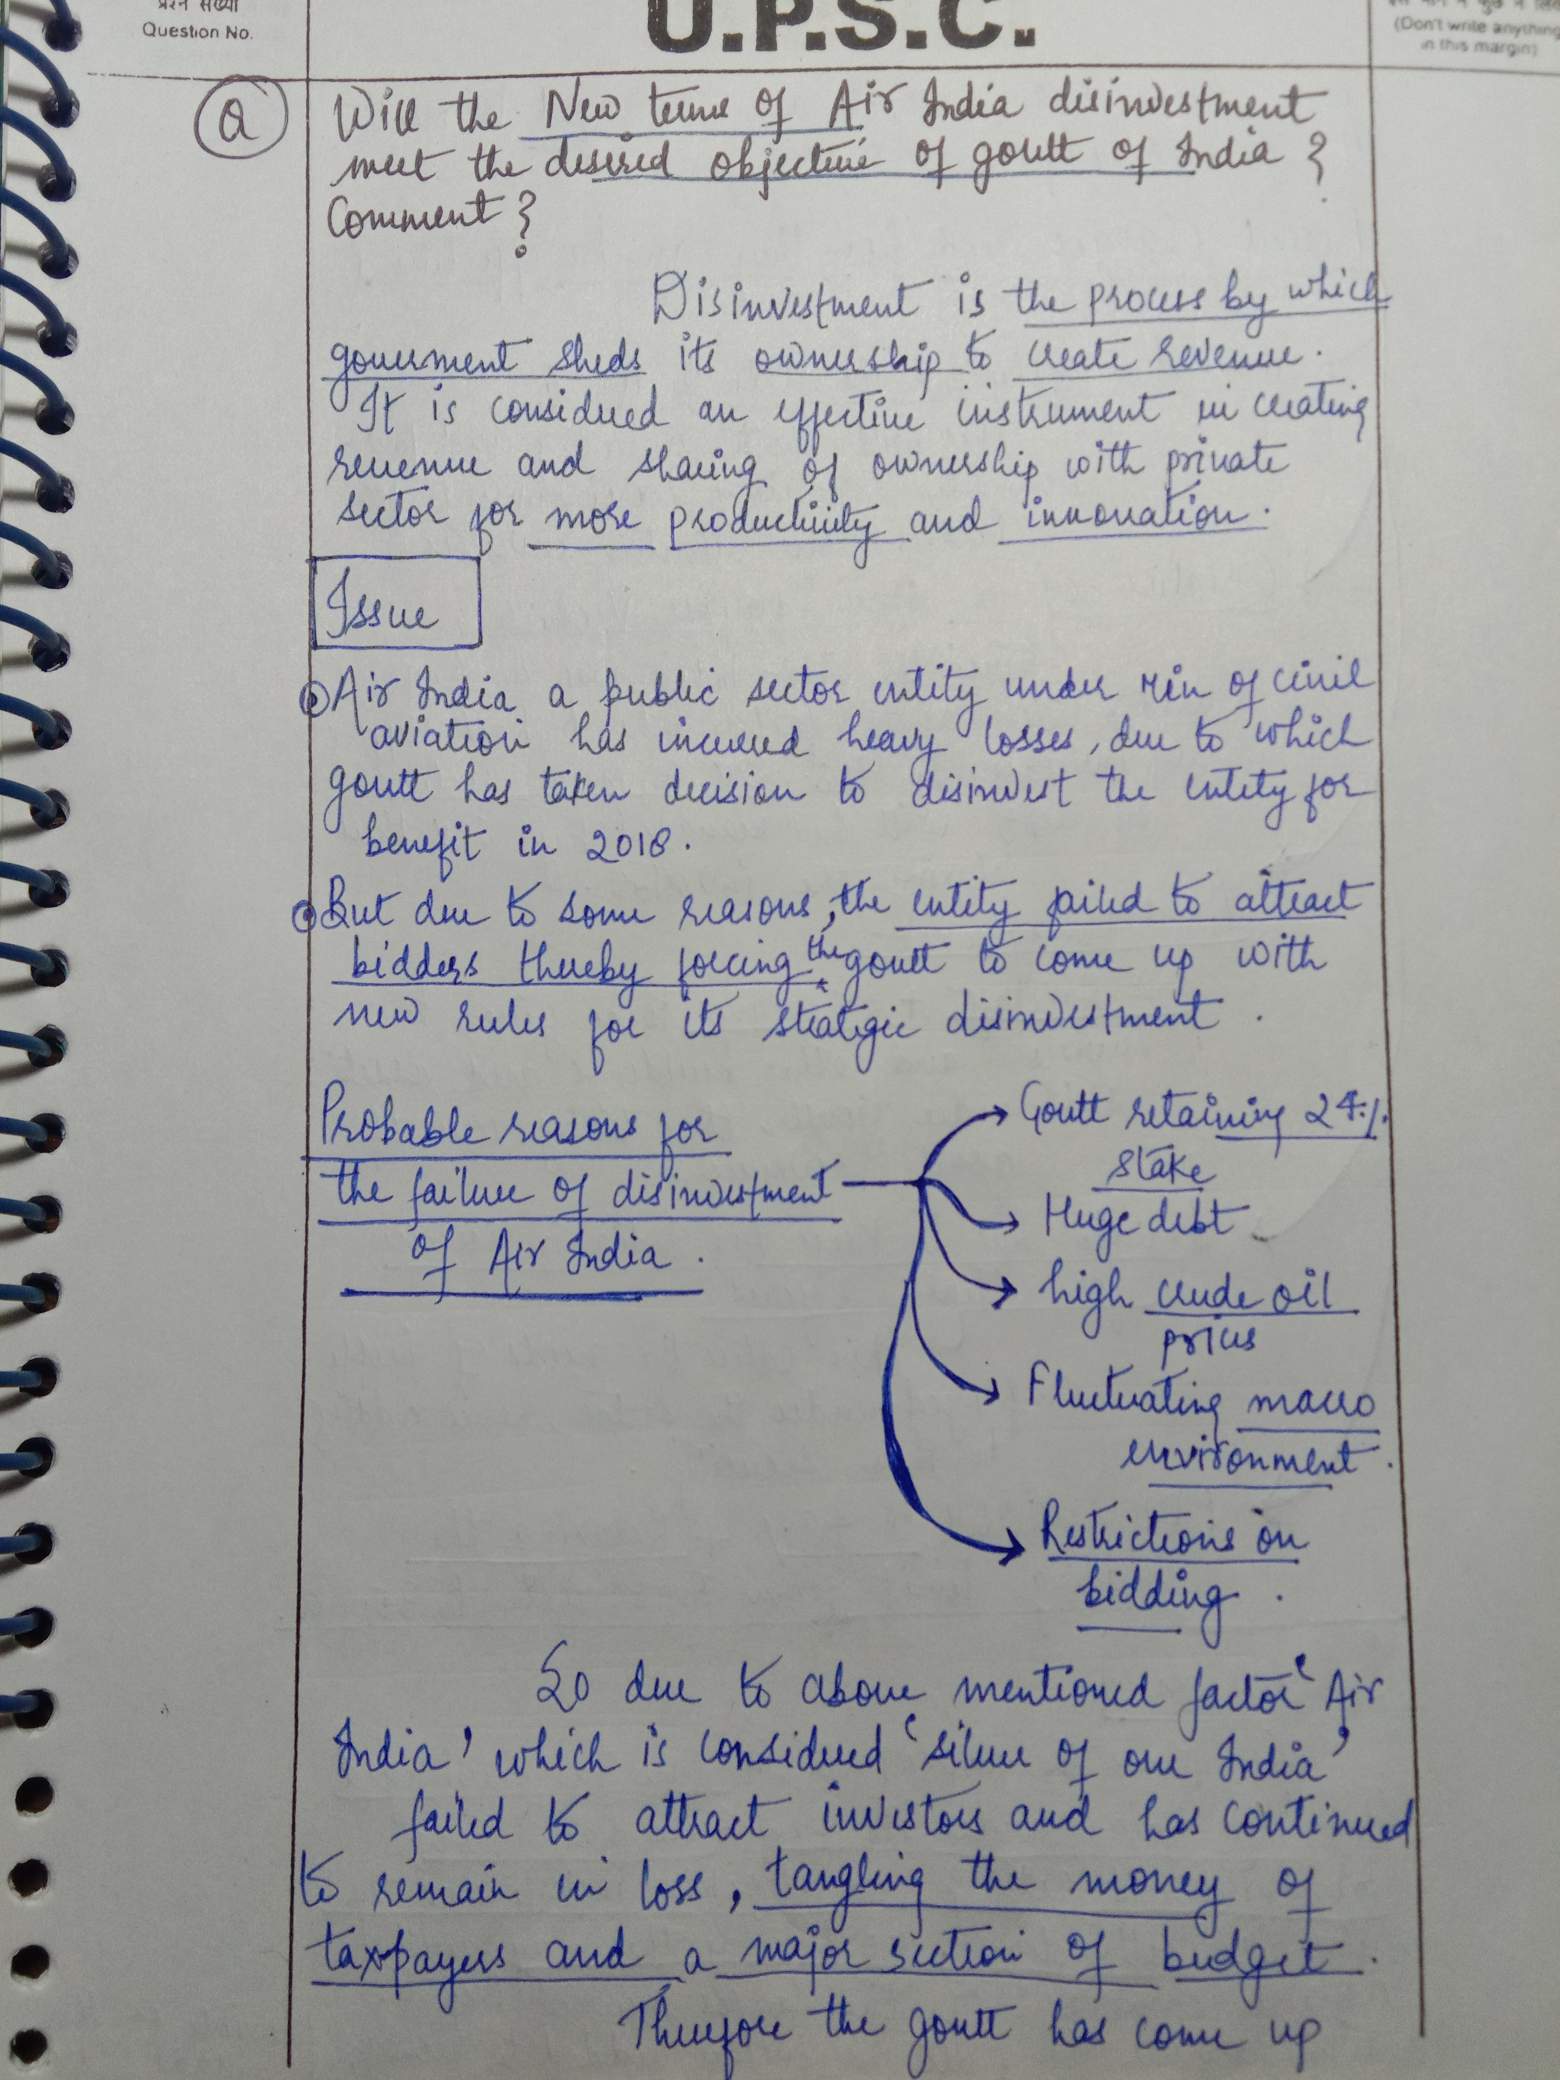 प्रश्न संख्या
Question No.
U.P.S.C.
(Don't write anything
in this margin)
Q
Will the New terms of Air India disinvestment
meet the desired objective of goutt of India ?
Comment ?
Disinvestment is the process by which
government sheds its ownership to create revenue.
It is considered an effective instrument in creating
revenue and sharing of ownership with private
sector for more productivity and innovation.
Issue
Air India a public sector entity under Min of civil
aviation has incurred heavy losses, due to which
goutt has taken decision to disinvest the entity for
benefit in 2018.
But due to some reasons, the entity failed to attract
bidders thereby forcing the goutt to come up with
new rules for its strategic disinvestment .
Probable reasons for
the failure of disinvestment
of Air India .
Goutt retaining 24%
stake
Huge debt
high crude oil
prices
Fluctuating macro
environment .
Restrictions on
bidding .
So due to above mentioned factor 'Air
India' which is considered 'silver of our India'
failed to attract investors and has continued
to remain in loss, tangling the money of
taxpayers and a major section of budget.
Therefore the goutt has come up